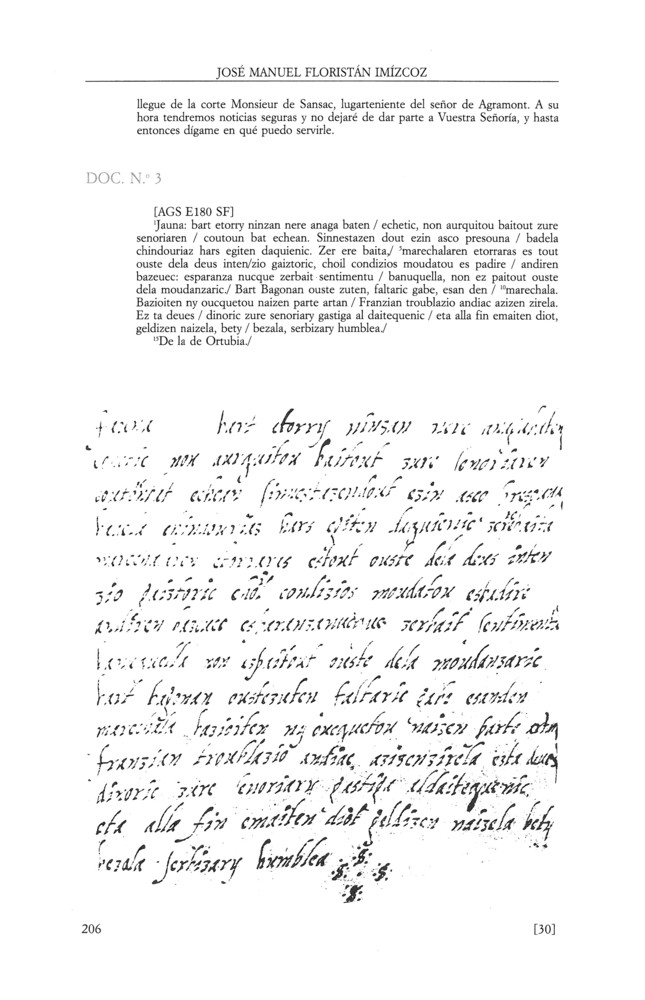 JOSÉ MANUEL FLORISTÁN IMÍZCOZ
llegue de la corte Monsieur de Sansac, lugarteniente del señor de Agramont. A su
hora tendremos noticias seguras y no dejaré de dar parte a Vuestra Señoría, y hasta
entonces dígame en qué puedo servirle.
DOC. N.º 3
[AGS E180 SF]
¹Jauna: bart etorry ninzan nere anaga baten / echetic, non aurquitou baitout zure
senoriaren / coutoun bat echean. Sinnestazen dout ezin asco presouna / badela
chindouriaz hars egiten daquienic. Zer ere baita,/ ⁵marechalaren etorraras es tout
ouste dela deus inten/zio gaiztoric, choil condizios moudatou es padire / andiren
bazeuec: esparanza nucque zerbait sentimentu / banuquella, non ez paitout ouste
dela moudanzaric./ Bart Bagonan ouste zuten, faltaric gabe, esan den / ¹⁰marechala.
Bazioiten ny oucquetou naizen parte artan / Franzian troublazio andiac azizen zirela.
Ez ta deues / dinoric zure senoriary gastiga al daitequenic / eta alla fin emaiten diot,
geldizen naizela, bety / bezala, serbizary humblea./
¹⁵De la de Ortubia./
bart etorry ninzan nere
non aurquitou baitout zure senoriaren
echean sinnestazendout ezin asco
hars egiten daquienic
estout ouste dela deus inten
zio gaistoric choil condizios moudatou espadire
zerbait sentimentu
non espaitout ouste dela moudanzaric
bart bagonan oustezuten faltaric gabe esanden
marechala bazioiten ny oucquetou naizen parte artan
franzian troublazio andiac azizenzirela esta deues
dinoric zure senoriary gastiga aldaitequenic
eta alla fin emaiten diot geldizen naizela bety
bezala serbizary humblea
206
[30]